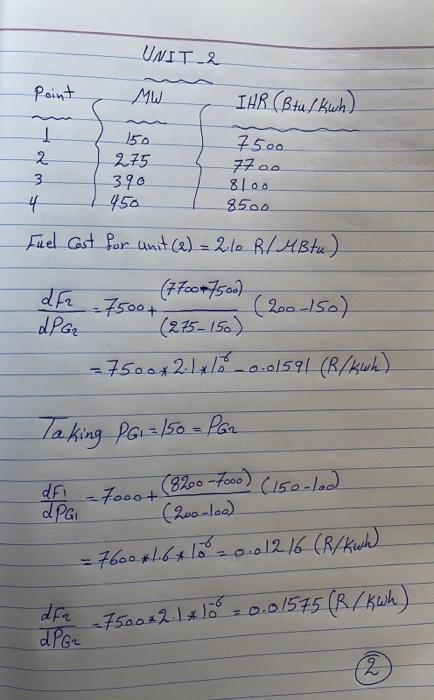 UNIT_2
Point MW IHR (Btu/Kwh)
1 150 7500
2 275 7700
3 390 8100
4 450 8500
Fuel Cost for unit (2) = 2.10 R/MBtu)
dF2/dPG2 = 7500 + (7700-7500)/(275-150) (200-150)
= 7500 * 2.1 * 10^-6 = 0.01591 (R/kwh)
Taking PG1 = 150 = PG2
dF1/dPG1 = 7000 + (8200-7000)/(200-100) (150-100)
= 7600 * 1.6 * 10^-6 = 0.01216 (R/Kwh)
dF2/dPG2 = 7500 * 2.1 * 10^-6 = 0.01575 (R/Kwh)
2